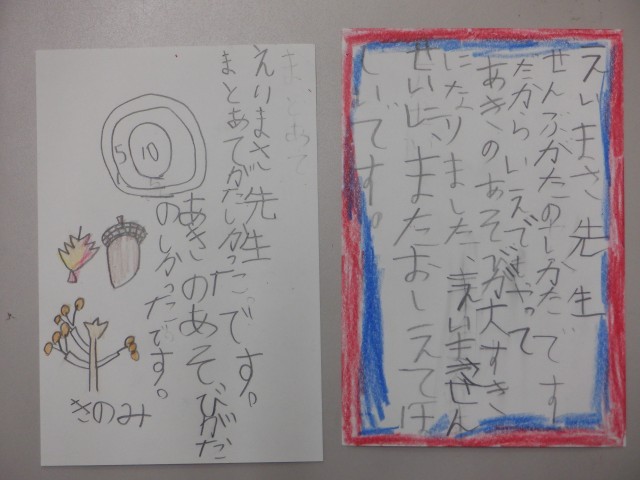 まとあて
えりまさ先生
まとあてがたのしかったです。
あきのあそびがた
のしかったです。
5 10
きのみ
えいまさ先生
ぜんぶがたのしかたです
だからいえでもやって
あきのあそびが大すき
になりました、えいまさせん
せいにまたおしえてほ
しいです。